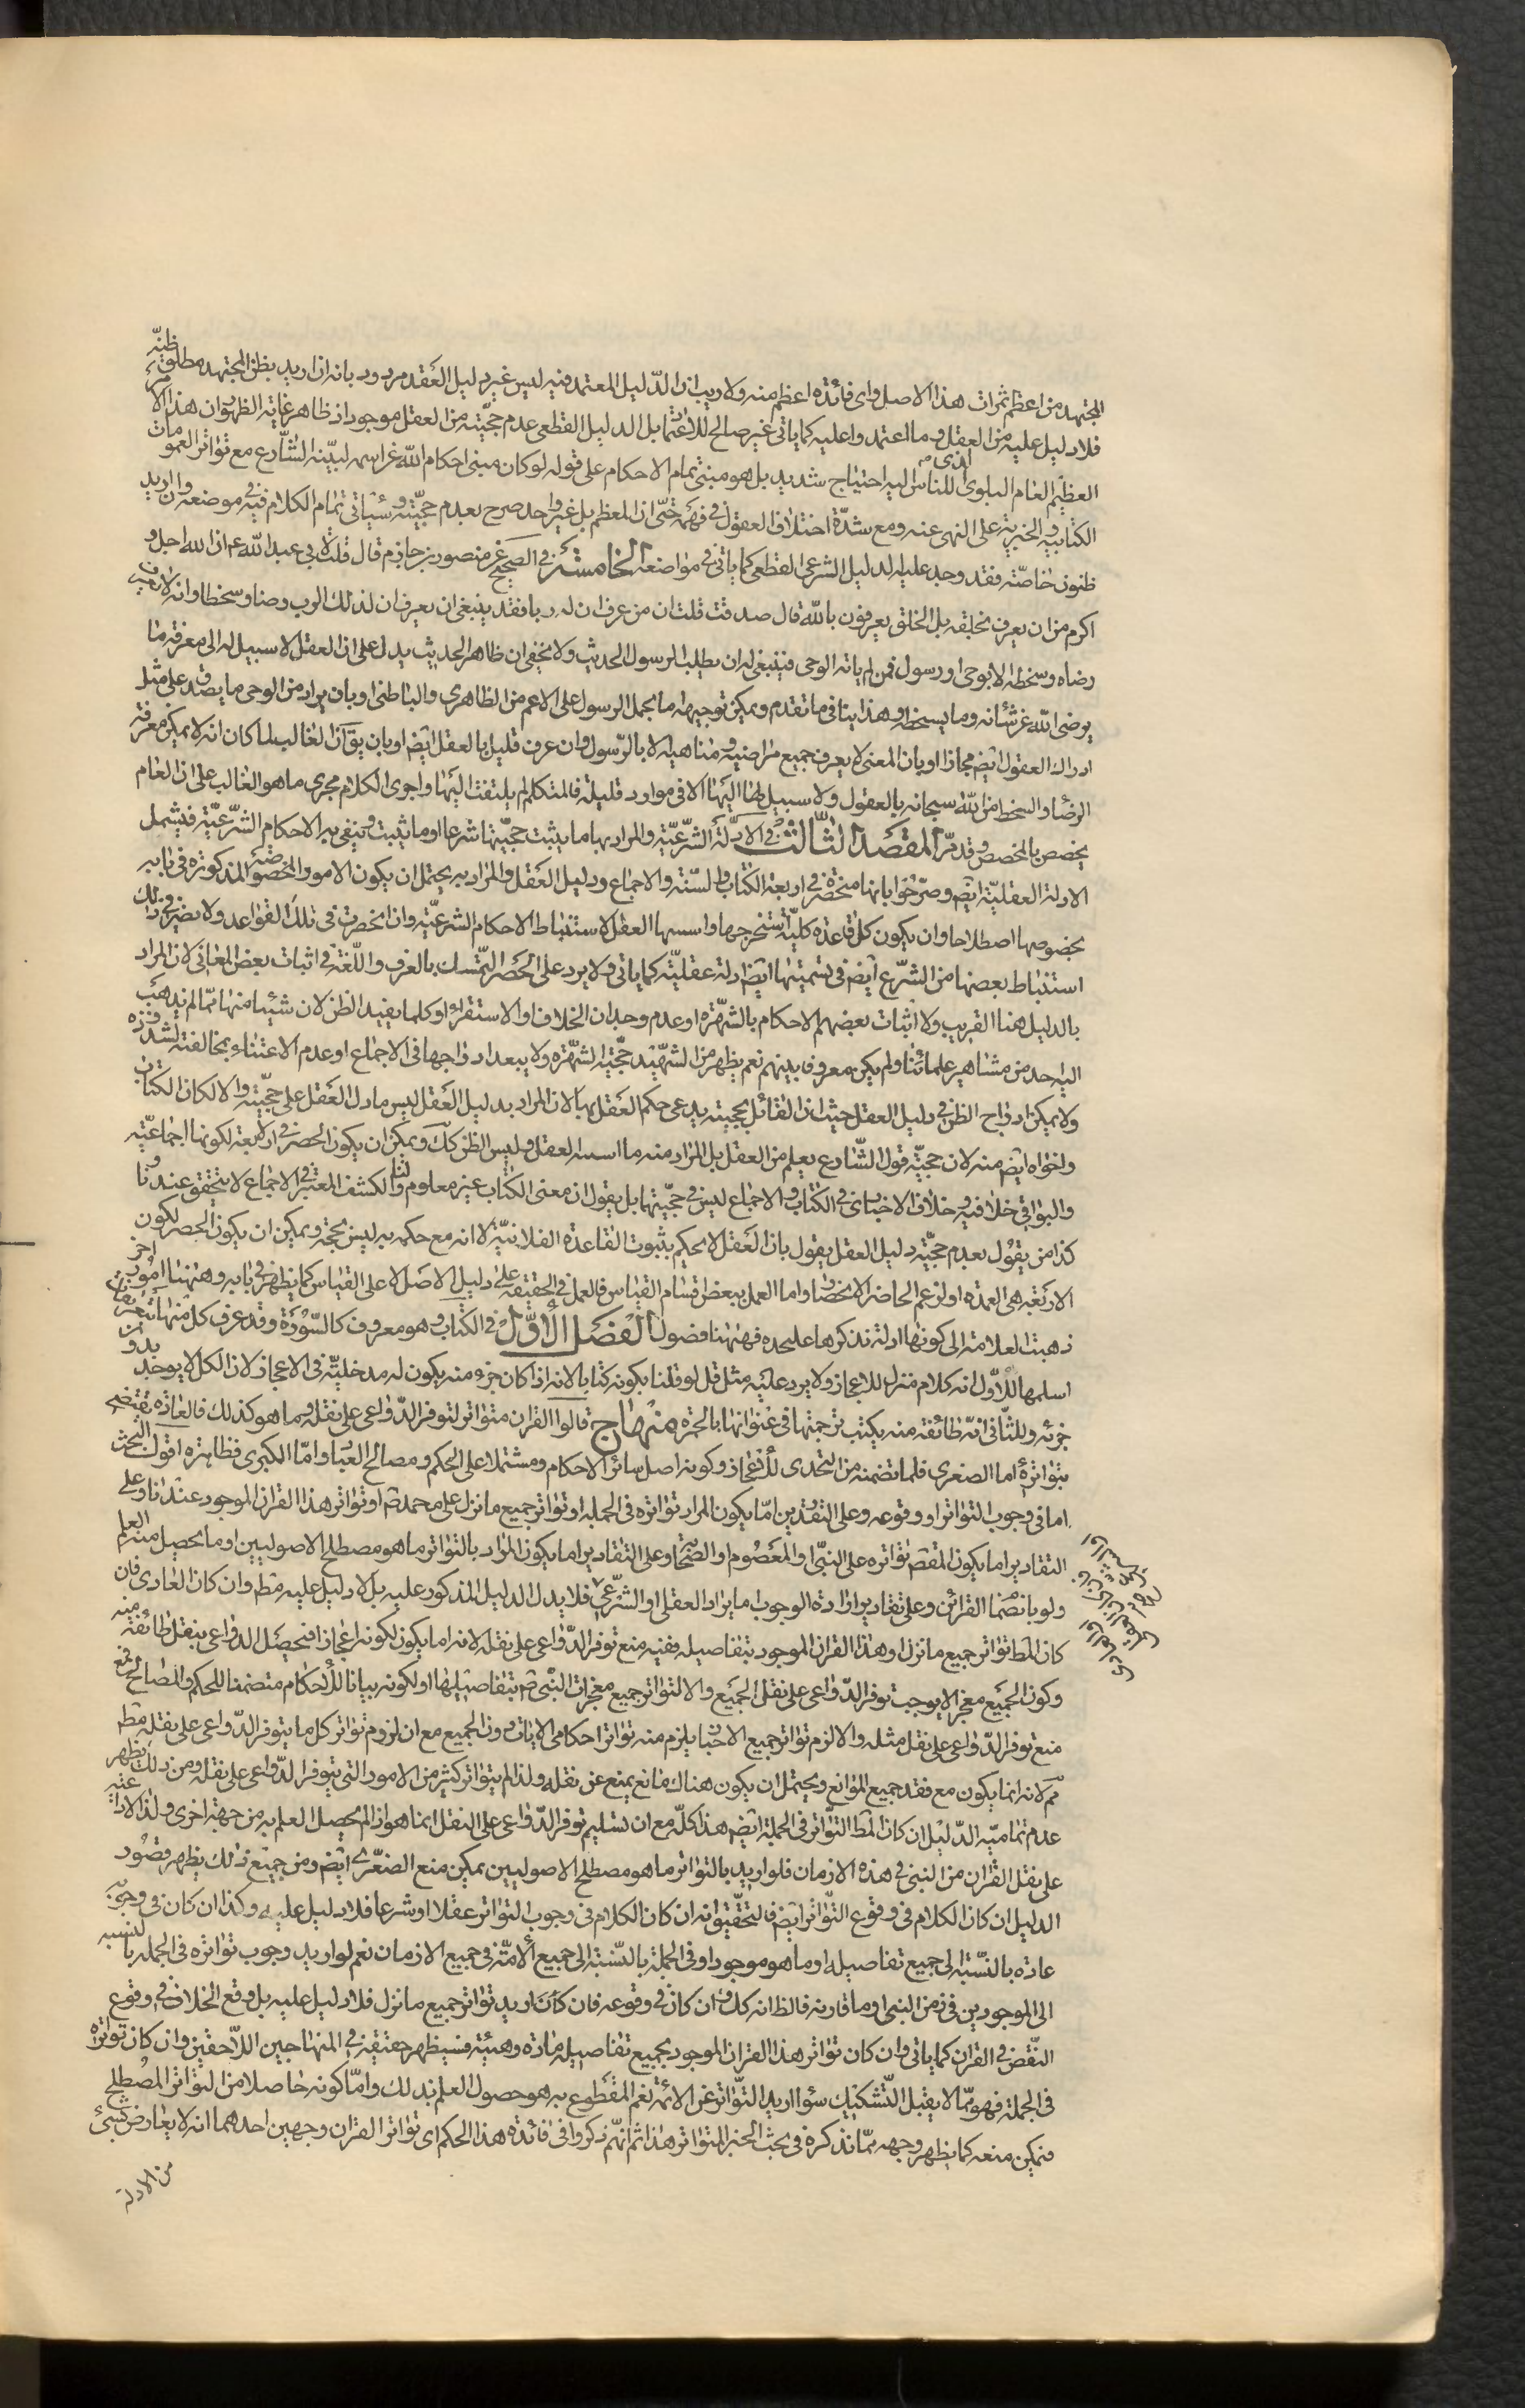 المجتهد من اعظم ثمرات هذا الاصل واى فائدة اعظم منه ولا ريب ان الدليل المعتمد فيه ليس غير دليل العقد مردود بانه ان اريد بظن المجتهد مطلق ظنه
فلا دليل عليه من العقل وما اعتمدوا عليه كما ياتى غير صالح للاعتماد بل الدليل القطعى عدم حجيته من العقل موجود اذ ظاهر غاية الظهور ان هذا الامر
العظيم العام البلوى الذى للناس اليه احتياج شديد بل هو مبنى تمام الاحكام على قوله لو كان مبنى احكام الله عز اسمه لبينه الشارع مع تواتر العمومات
الكتابية والخبرية على النهى عنه ومع شدة اختلاف العقول فى فهمه حتى ان المعظم بل غير واحد صرح بعدم حجيته وسياتى تمام الكلام فيه فى موضعه وان اريد
ظنون خاصة فقد وجد عليه الدليل الشرعى القطعى كما ياتى فى مواضعه الخامسة فى الصحيح عن منصور بن حازم قال قلت لابى عبد الله ع ان الله اجل و
اكرم من ان يعرف بخلقه بل الخلق يعرفون بالله قال صدقت قلت ان من عرف ان له ربا فقد ينبغى ان يعرف ان لذلك الرب رضا وسخطا وانه لا يعرف
رضاه وسخطه الا بوحى او رسول فمن لم ياته الوحى فينبغى له ان يطلب الرسول الحديث ولا يخفى ان ظاهر الحديث يدل على ان العقل لا سبيل له الى معرفة ما
يرضى الله عز شانه وما يسخطه وهذا ينافى ما تقدم ويمكن توجيهه اما بحمل الرسول على الاعم من الظاهرى والباطنى او بان يراد من الوحى ما يصدق على مثل
ادراك العقول ايض مجازا او بان المعنى لا يعرف جميع مراضيه ومناهيه الا بالرسول وان عرف قليل بالعقل ايض او بان يق ان الغالب لما كان انه لا يمكن معرفة
الرضا والسخط من الله سبحانه بالعقول ولا سبيل لها اليها الا فى موارد قليلة فالمتكلم لم يلتفت اليها واجرى الكلام مجرى ما هو الغالب على ان العام
يخصص بالمخصص وقد مر المقصد الثالث فى الادلة الشرعية والمراد بها ما يثبت حجيتها شرعا او ما يثبت وينفى به الاحكام الشرعية فيشمل
الادلة العقلية ايض وصرحوا بانها منحصرة فى اربعة الكتاب والسنة والاجماع ودليل العقل والمراد به يحتمل ان يكون الامور المخصوصة المذكورة فى بابه
بخصوصها اصطلاحا وان يكون كل قاعدة كلية استخرجها واسسها العقل لاستنباط الاحكام الشرعية وان انحصرت فى تلك القواعد ولا يضر فى ذلك
استنباط بعضها من الشرع ايض فى تسميتها ايض ادلة عقلية كما ياتى ولا يرد على الحصر التمسك بالعرف واللغة فى اثبات بعض المعانى لان المراد
بالدليل هنا القريب ولا اثبات بعضهم الاحكام بالشهرة او عدم وجدان الخلاف او الاستقراء او كلما يفيد الظن لان شيئا منها مما لم يذهب
اليه احد من مشاهير علمائنا ولم يكن معروف بينهم نعم يظهر من الشهيد حجية الشهرة ولا يبعد ادراجها فى الاجماع او عدم الاعتناء بمخالفته لشذوذه
ولا يمكن ادراج الظن فى دليل العقل حيث ان القائل بحجيته يدعى حكم العقل بها لان المراد بدليل العقل ليس ما دل العقل على حجيته والا لكان الكتاب
واخواه ايض منه لان حجية قول الشارع يعلم من العقل بل المراد منه ما اسسه العقل وليس الظن كك ويمكن ان يكون الحصر فى اربعة لكونها اجماعية
والبواقى خلافية وخلاف الاخبارى فى الكتاب والاجماع ليس فى حجيتهما بل يقول ان معنى الكتاب غير معلوم لنا والكشف المعتبر فى الاجماع لا يتحقق عندنا و
كذا من يقول بعدم حجية دليل العقل يقول بان العقل لا يحكم بثبوت القاعدة الفلانية لا انه مع حكمه به ليس بحجة ويمكن ان يكون الحصر لكون
الاربعة هى العمدة او لزعم الحاصر الانحصار واما العمل ببعض اقسام القياس فالعمل فى الحقيقة على دليل الاصل لا على القياس كما يظهر فى بابه وههنا امور اخر
ذهبت العلامة الى كونها ادلة نذكرها عليحده فههنا فصول الفصل الاول فى الكتاب وهو معروف كالسورة وقد عرف كل منها بتعريفات
اسلمها للاول انه كلام منزل للاعجاز ولا يرد عليه مثل قل لو قلنا بكونه كتابا لانه اذا كان جزء منه يكون له مدخلية فى الاعجاز لان الكل لا يوجد بدون
جزئه وللثانى انه طائفة منه يكتب ترجمتها فى عنوانها بالحمرة منهاج قالوا القران متواتر لتوفر الدواعى على نقله وما هو كذلك فالعادة يقتضى
بتواتره اما الصغرى فلما تضمنه من التحدى للاعجاز وكونه اصل سائر الاحكام ومشتملا على الحكم ومصالح العباد واما الكبرى فظاهرة اقول البحث
اما فى وجوب التواتر او وقوعه وعلى التقديرين اما يكون المراد تواتره فى الجملة او تواتر جميع ما نزل على محمد ص او تواتر هذا القران الموجود عندنا وعلى
التقادير اما يكون المقص تواتره على النبى او المعصوم او الصحابة وعلى التقادير اما يكون المراد بالتواتر ما هو مصطلح الاصوليين او ما يحصل منه العلم
ولو بانضمام القرائن وعلى تقدير ارادة الوجوب اما يراد العقلى او الشرعى فلا يدل الدليل المذكور عليه بل لا دليل عليه مطم وان كان العادى فان
كان المط تواتر جميع ما نزل او هذا القران الموجود بتفاصيله ففيه منع توفر الدواعى على نقله لانه اما يكون لكونه اعجازا فيحصل الدواعى بنقل طائفة منه
وكون الجميع معجزا لا يوجب توفر الدواعى على نقل الجميع والا لتواتر جميع معجزات النبى ص بتفاصيلها او لكونه بيانا للاحكام متضمنا للحكم والمصالح فمع
منع توفر الدواعى على نقل مثله والا لزم تواتر جميع الاخبار يلزم منه تواتر احكامى الايات دون الجميع مع ان لزوم تواتر كل ما يتوفر الدواعى على نقله مطم
مم لانه انما يكون مع فقد جميع الموانع ويحتمل ان يكون هناك مانع يمنع عن نقله ولذا لم يتواتر كثير من الامور التى يتوفر الدواعى على نقله ومن ذلك يظهر
عدم تمامية الدليل ان كان المط التواتر فى الجملة ايض هذا كله مع ان تسليم توفر الدواعى على النقل انما هو اذا لم يحصل العلم به من جهة اخرى ولذا لا داعية
على نقل القران من النبى فى هذه الازمان فلو اريد بالتواتر ما هو مصطلح الاصوليين يمكن منع الصغرى ايض ومن جميع ذلك يظهر قصور
الدليل ان كان الكلام فى وقوع التواتر ايض فالتحقيق انه ان كان الكلام فى وجوب التواتر عقلا او شرعا فلا دليل عليه وكذا ان كان فى وجوبه
عادة بالنسبة الى جميع تفاصيله او ما هو موجود او فى الجملة بالنسبة الى جميع الامة فى جميع الازمان نعم لو اريد وجوب تواتره فى الجملة بالنسبة
الى الموجودين فى زمن النبى او ما قاربه فالظ انه كك وان كان فى وقوعه فان كان اريد تواتر جميع ما نزل فلا دليل عليه بل وقع الخلاف فى وقوع
النقص فى القران كما ياتى وان كان تواتر هذا القران الموجود بجميع تفاصيله مادة وهيئة فسيظهر حقيقته فى المنهاجين اللاحقين وان كان تواتره
فى الجملة فهو مما لا يقبل التشكيك سواء اريد التواتر عن الائمة نعم المقطوع به هو حصول العلم بذلك واما كونه حاصلا من التواتر المصطلح
فيمكن منعه كما يظهر وجهه مما نذكره فى بحث الخبر المتواتر هذا ثم انهم ذكروا فى فائدة هذا الحكم اى تواتر القران وجهين احدهما انه لا يعارض بشئ
من الادلة